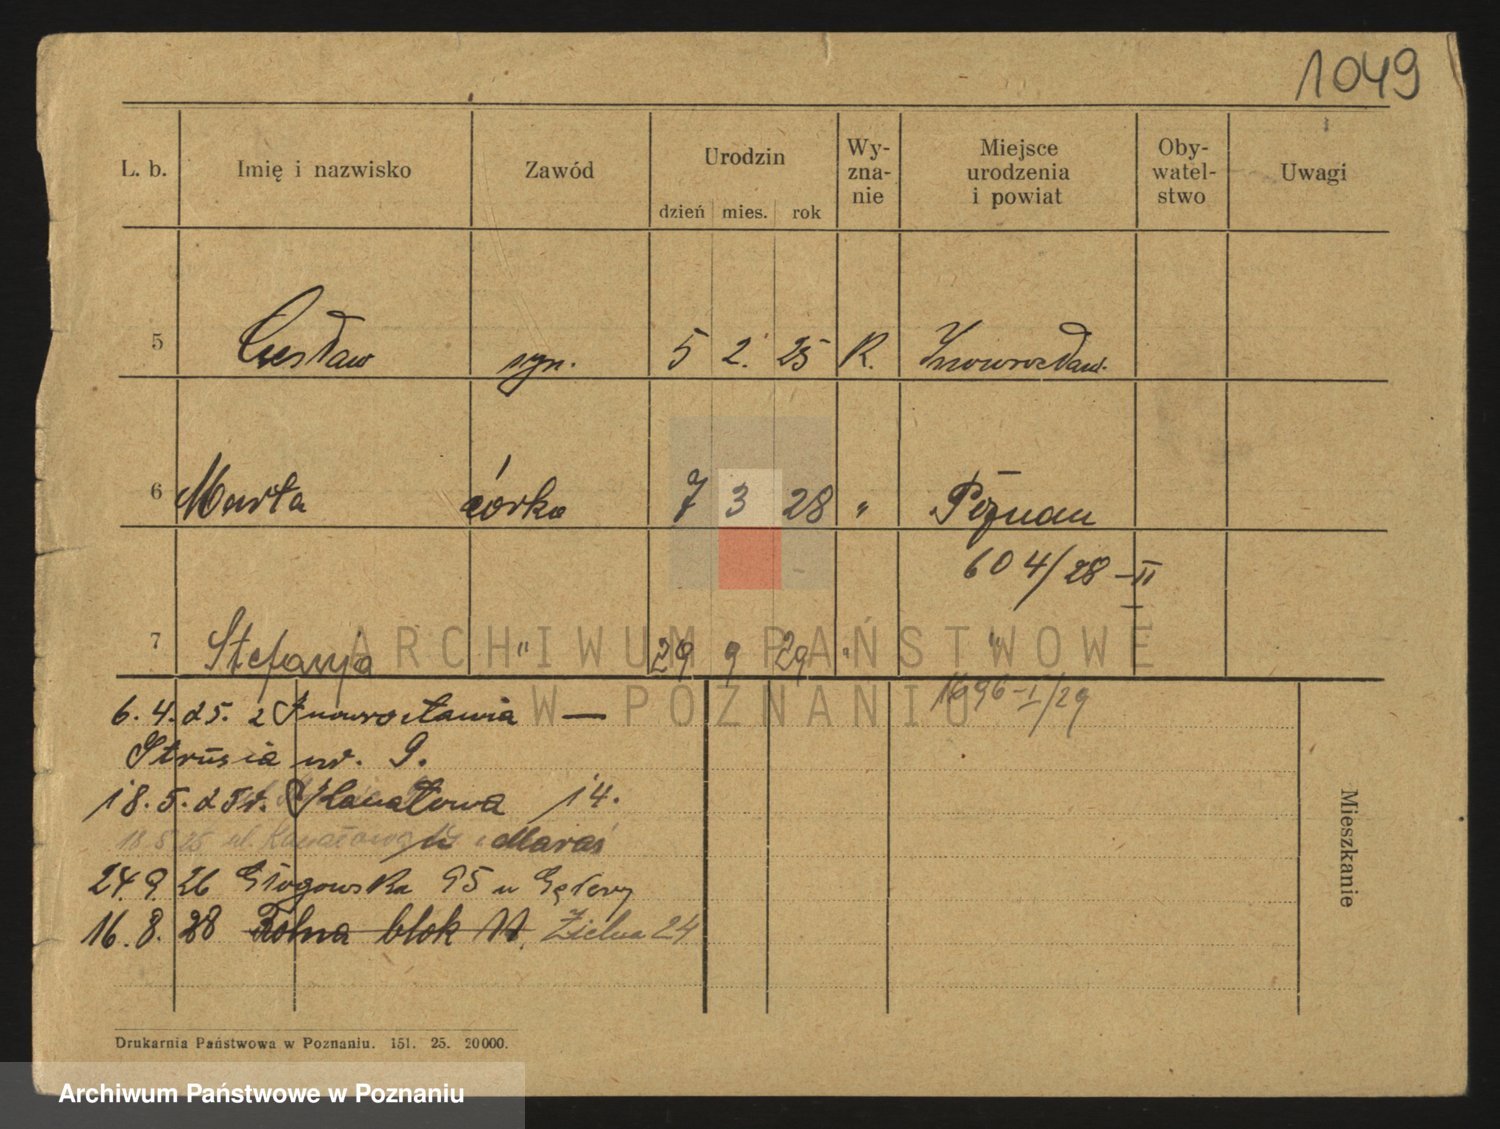 1049
L. b. Imię i nazwisko Zawód Urodzin dzień mies. rok Wy-zna-nie Miejsce urodzenia i powiat Oby-watel-stwo Uwagi
5 Czesław syn. 5 2. 25 R. Inowrocław.
6 Marta córka 7 3 28 " Poznań
604/28-II
7 Stefanja " 29 9 29 " "
1696-I/29
6. 4. 25. z Inowrocławia —
Strusia nr. 9.
18. 5. 25r. Kanałowa 14.
18 5 25 ul. Kanałowa 14 Maraś
24. 9. 26 Głogowska 95 u
16. 8. 28 Rolna blok 11. Zielna 24
Mieszkanie
Drukarnia Państwowa w Poznaniu. 151. 25. 20000.
ARCHIWUM PAŃSTWOWE
W POZNANIU
Archiwum Państwowe w Poznaniu